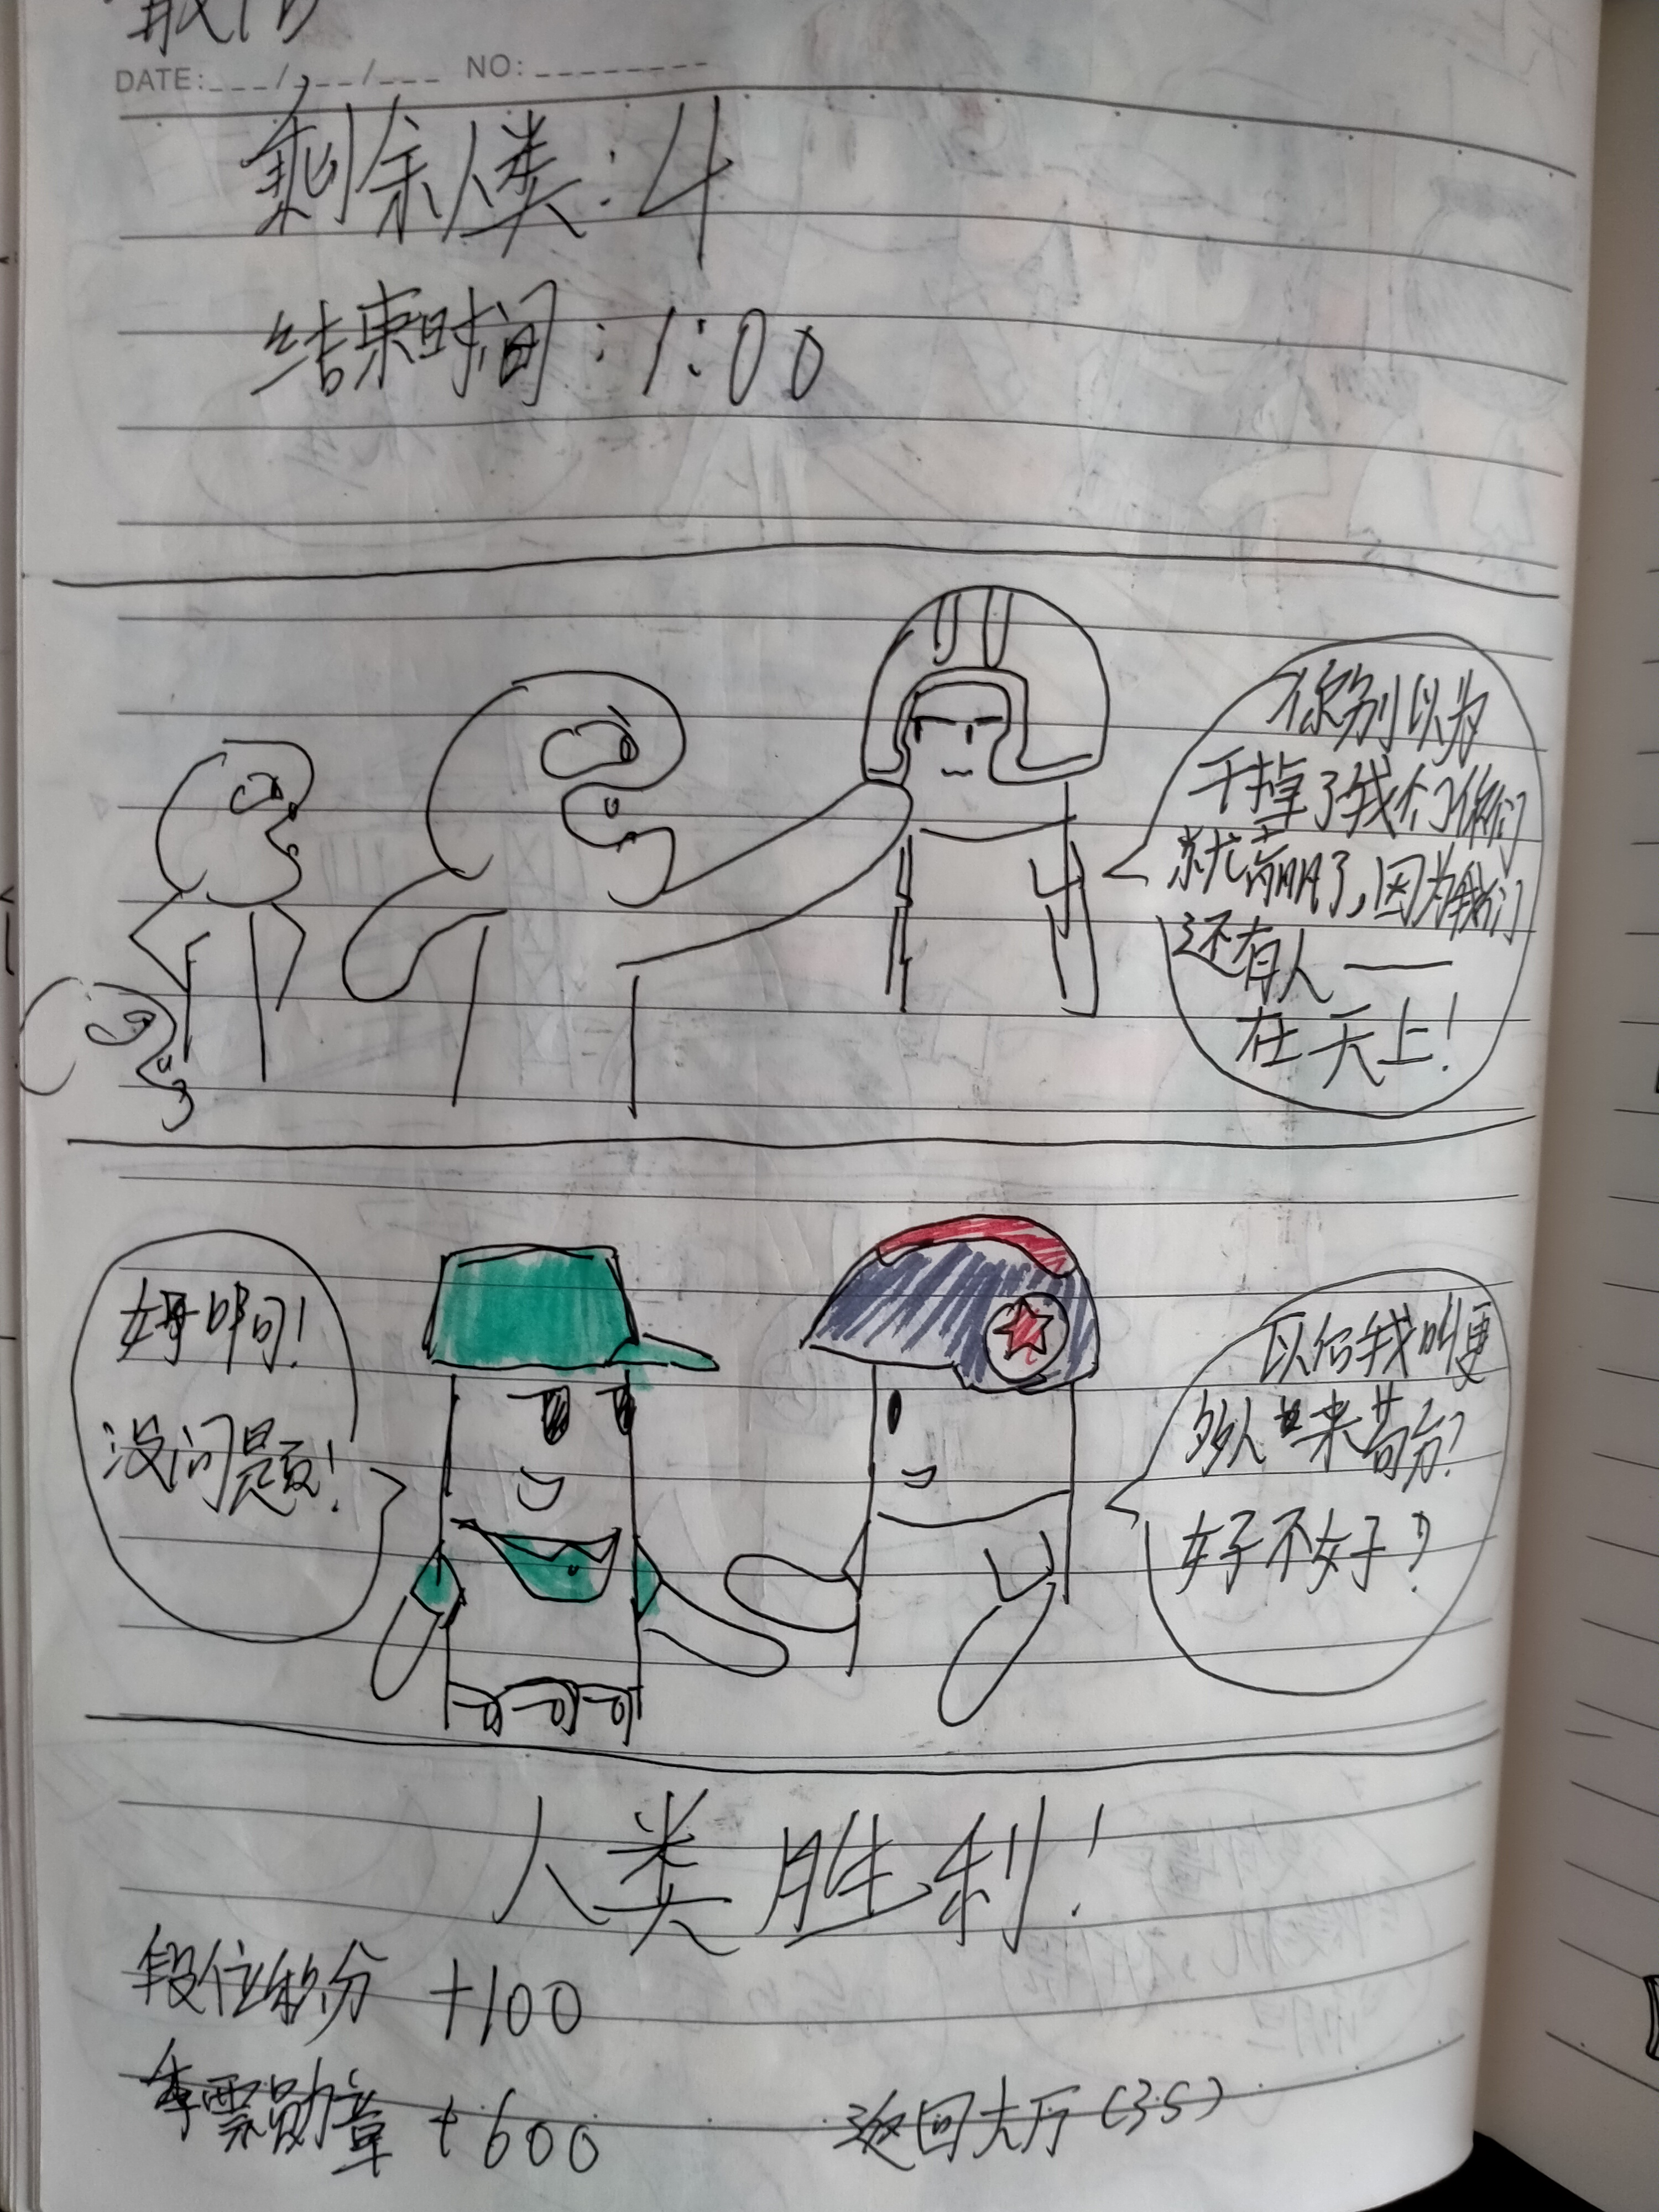 DATE:___/___/___ NO:_________
剩余人类:4
结束时间:1:00
你别以为
干掉了我们你们
就赢了,因为我们
还有人——
在天上!
好啊!
没问题!
以后我叫更
多人来苟分?
好不好?
人类胜利!
段位积分 +100
勋章 +600
返回大厅(3s)